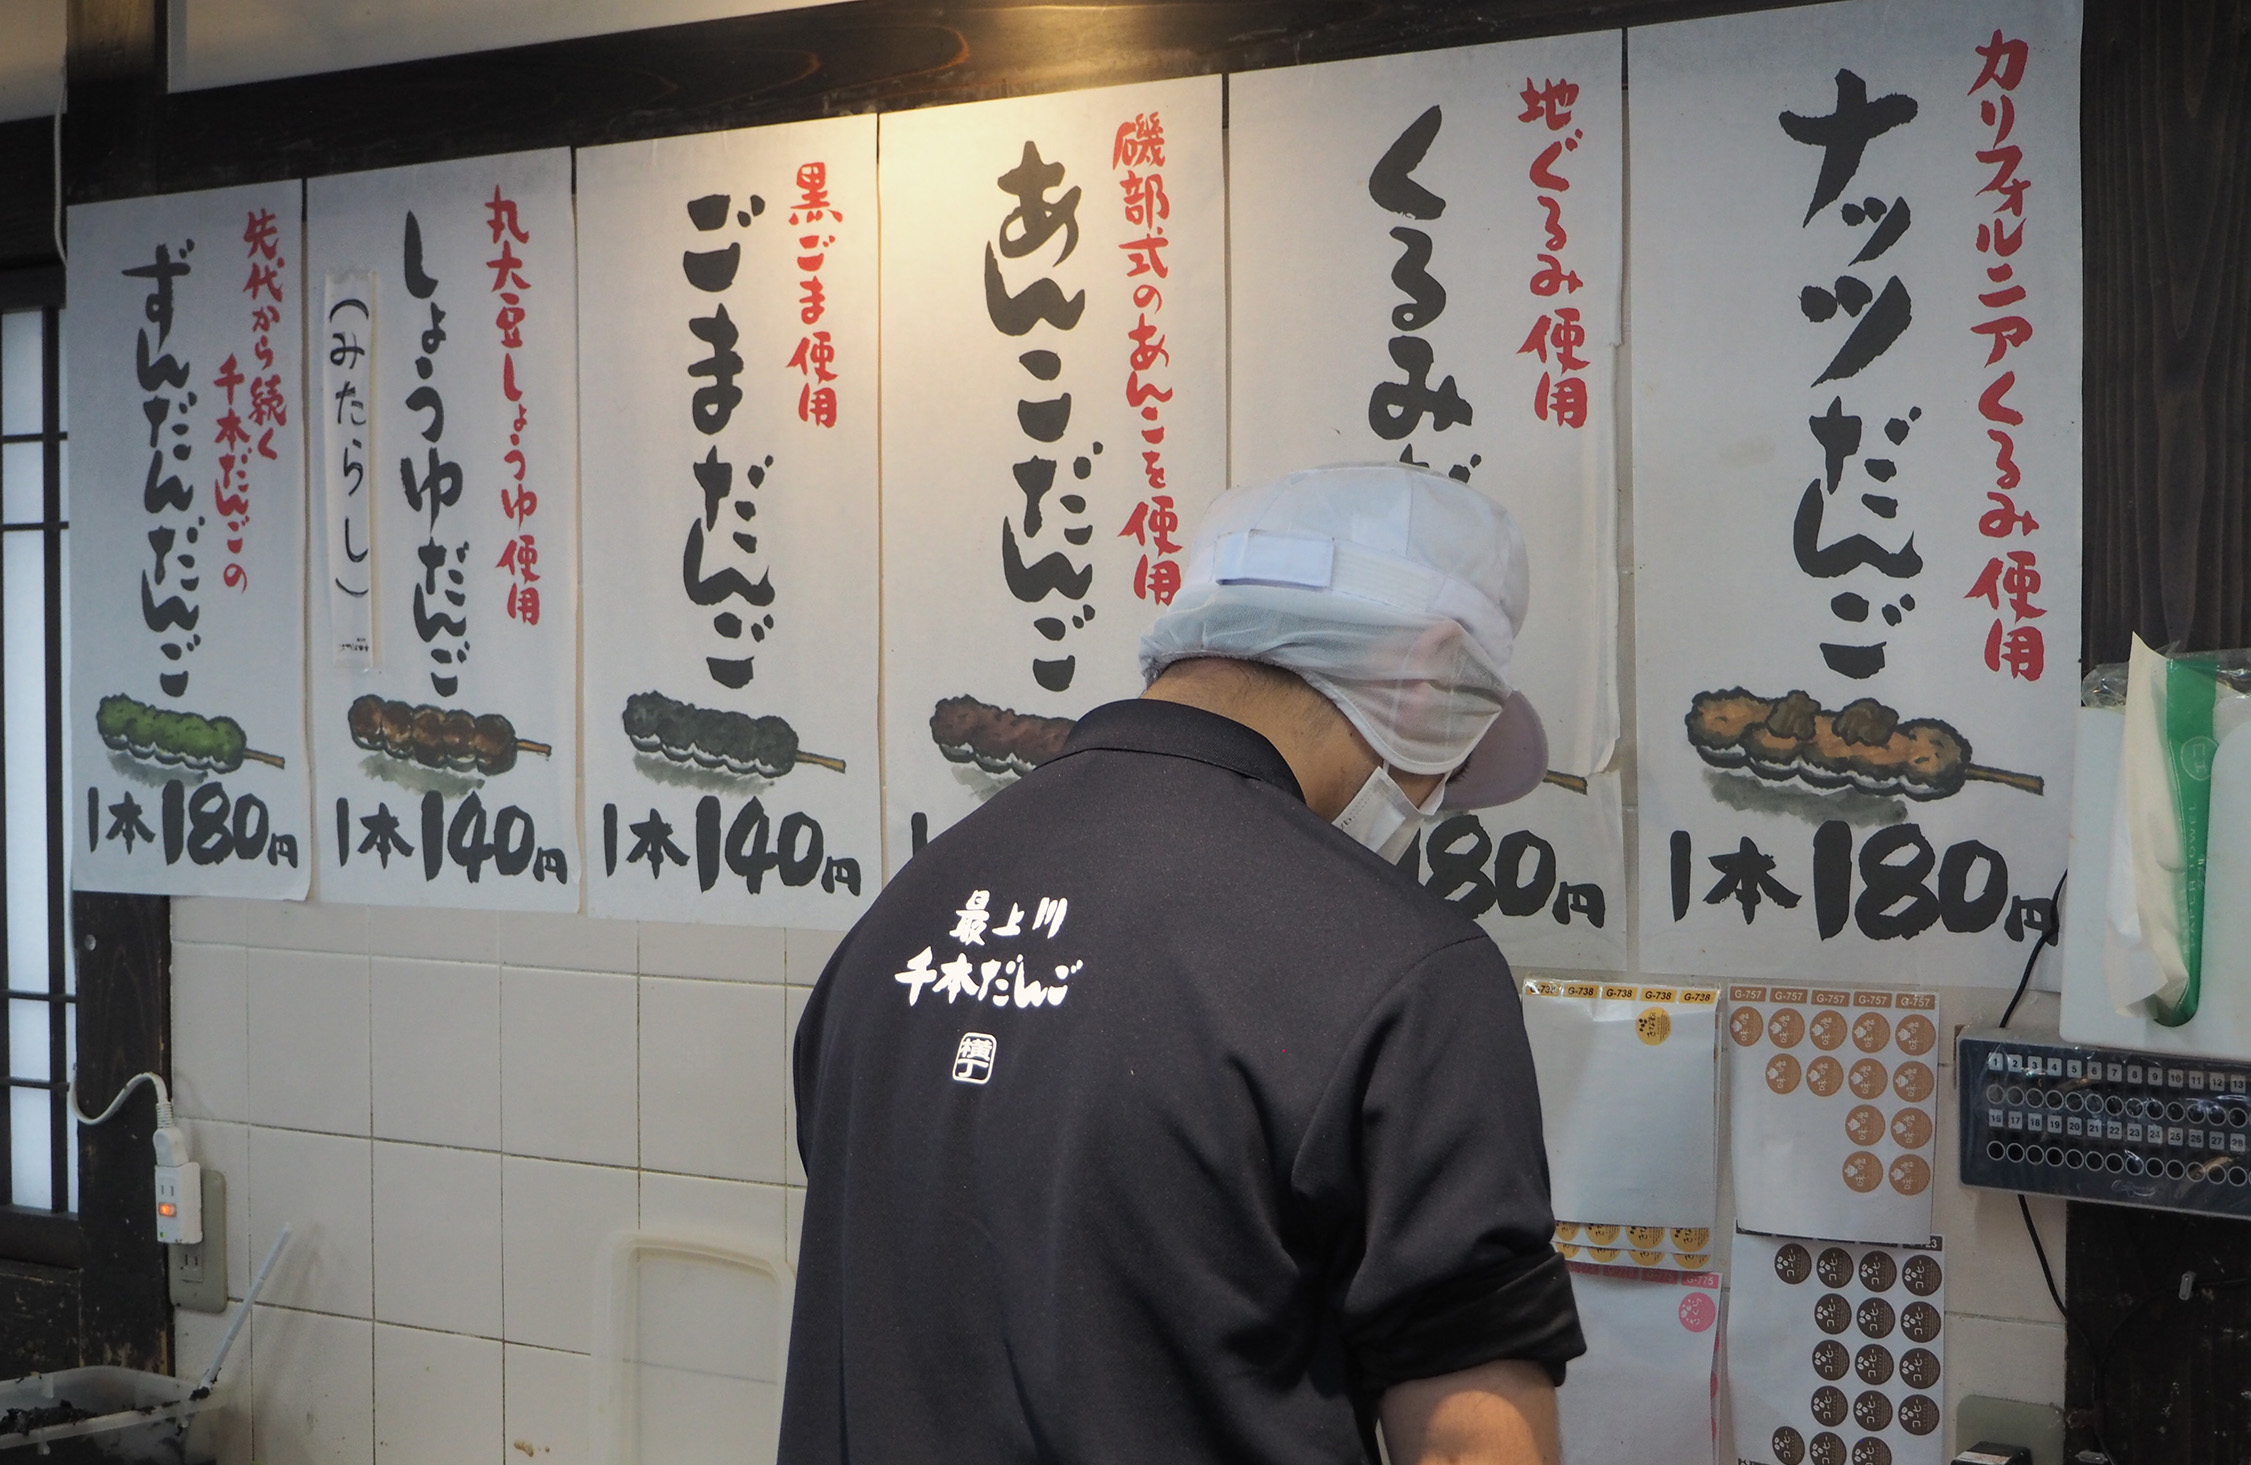 カリフォルニアくるみ使用
ナッツだんご
1本180円
地ぐるみ使用
くるみだ
180円
磯部式のあんこを使用
あんこだんご
黒ごま使用
ごまだんご
1本140円
丸大豆しょうゆ使用
しょうゆだんご
(みたらし)
1本140円
先代から続く
千本だんごの
ずんだんだんご
1本180円
最上川
千本だんご
横丁
G-738 G-738 G-738 G-738
G-757 G-757 G-757 G-757 G-757
G-775
さくら
コーヒー
PAPER TOWEL
1 2 3 4 5 6 7 8 9 10 11 12 13
16 17 18 19 20 21 22 23 24 25 26 27 28